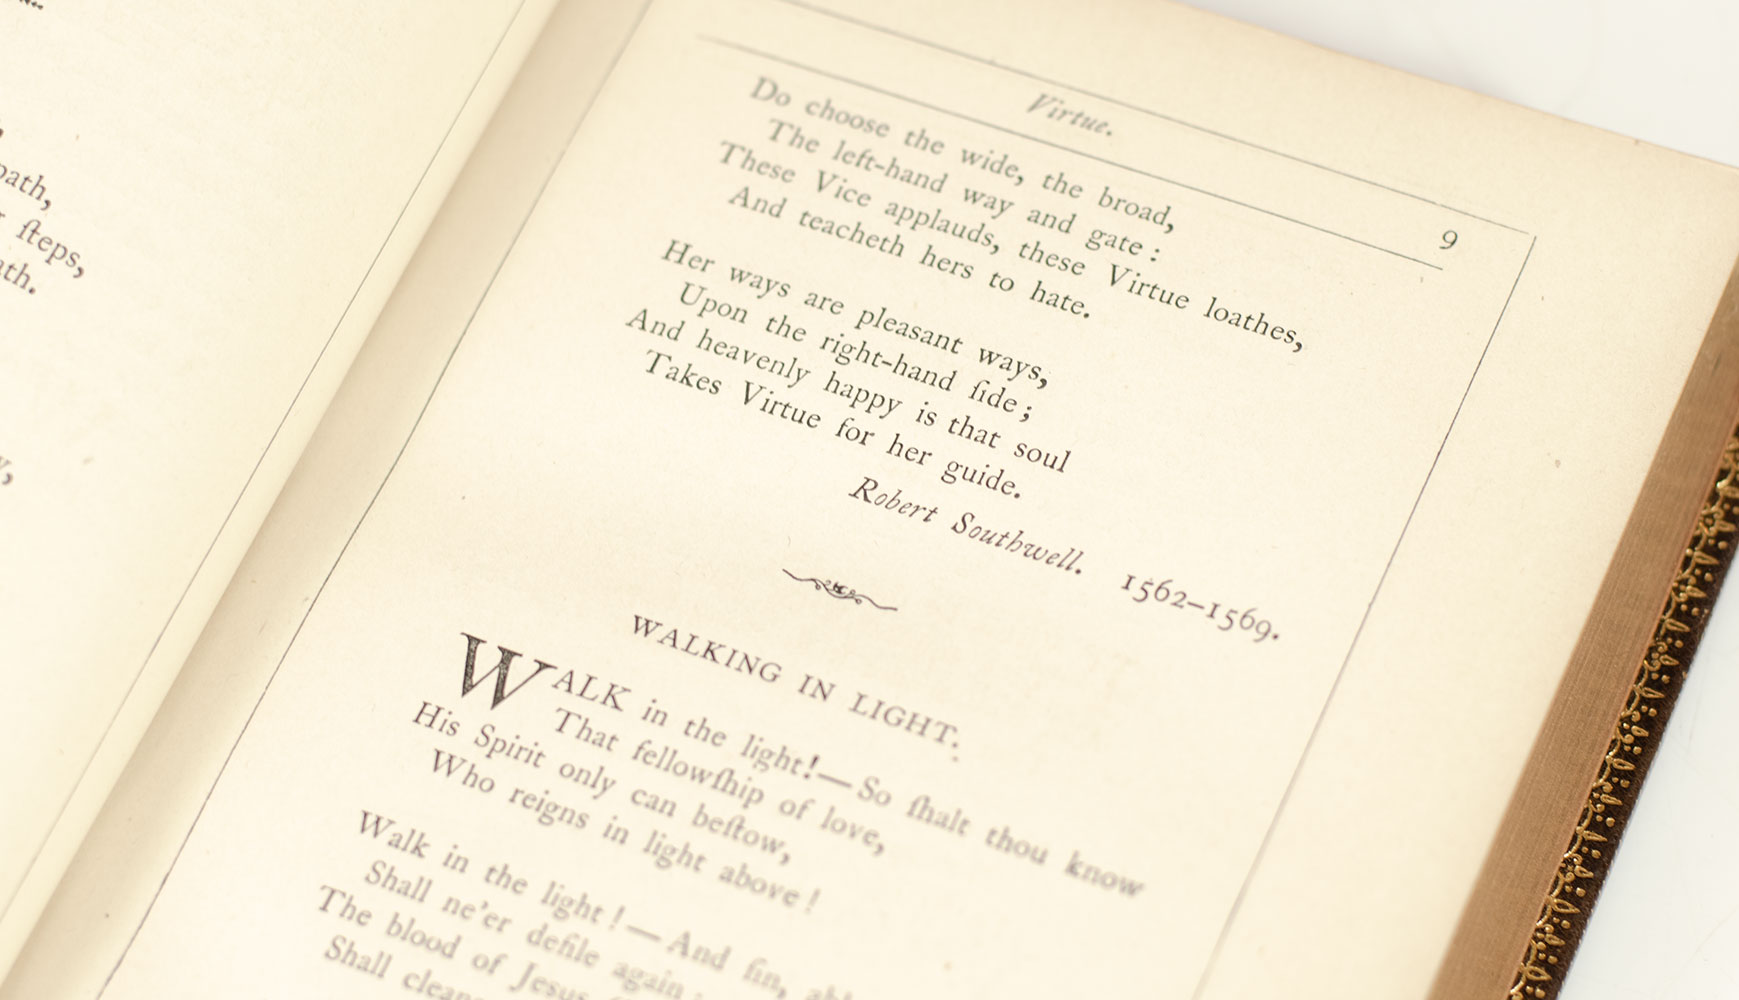 path,
steps,
Virtue.
9
Do choose the wide, the broad,
The left-hand way and gate :
These Vice applauds, these Virtue loathes,
And teacheth hers to hate.
Her ways are pleasant ways,
Upon the right-hand ſide ;
And heavenly happy is that soul
Takes Virtue for her guide.
Robert Southwell. 1562–1569.
WALKING IN LIGHT.
WALK in the light!—So ſhalt thou know
That fellowſhip of love,
His Spirit only can beſtow,
Who reigns in light above !
Walk in the light !—And ſin,
Shall ne'er defile again ;
The blood of Jesus
Shall